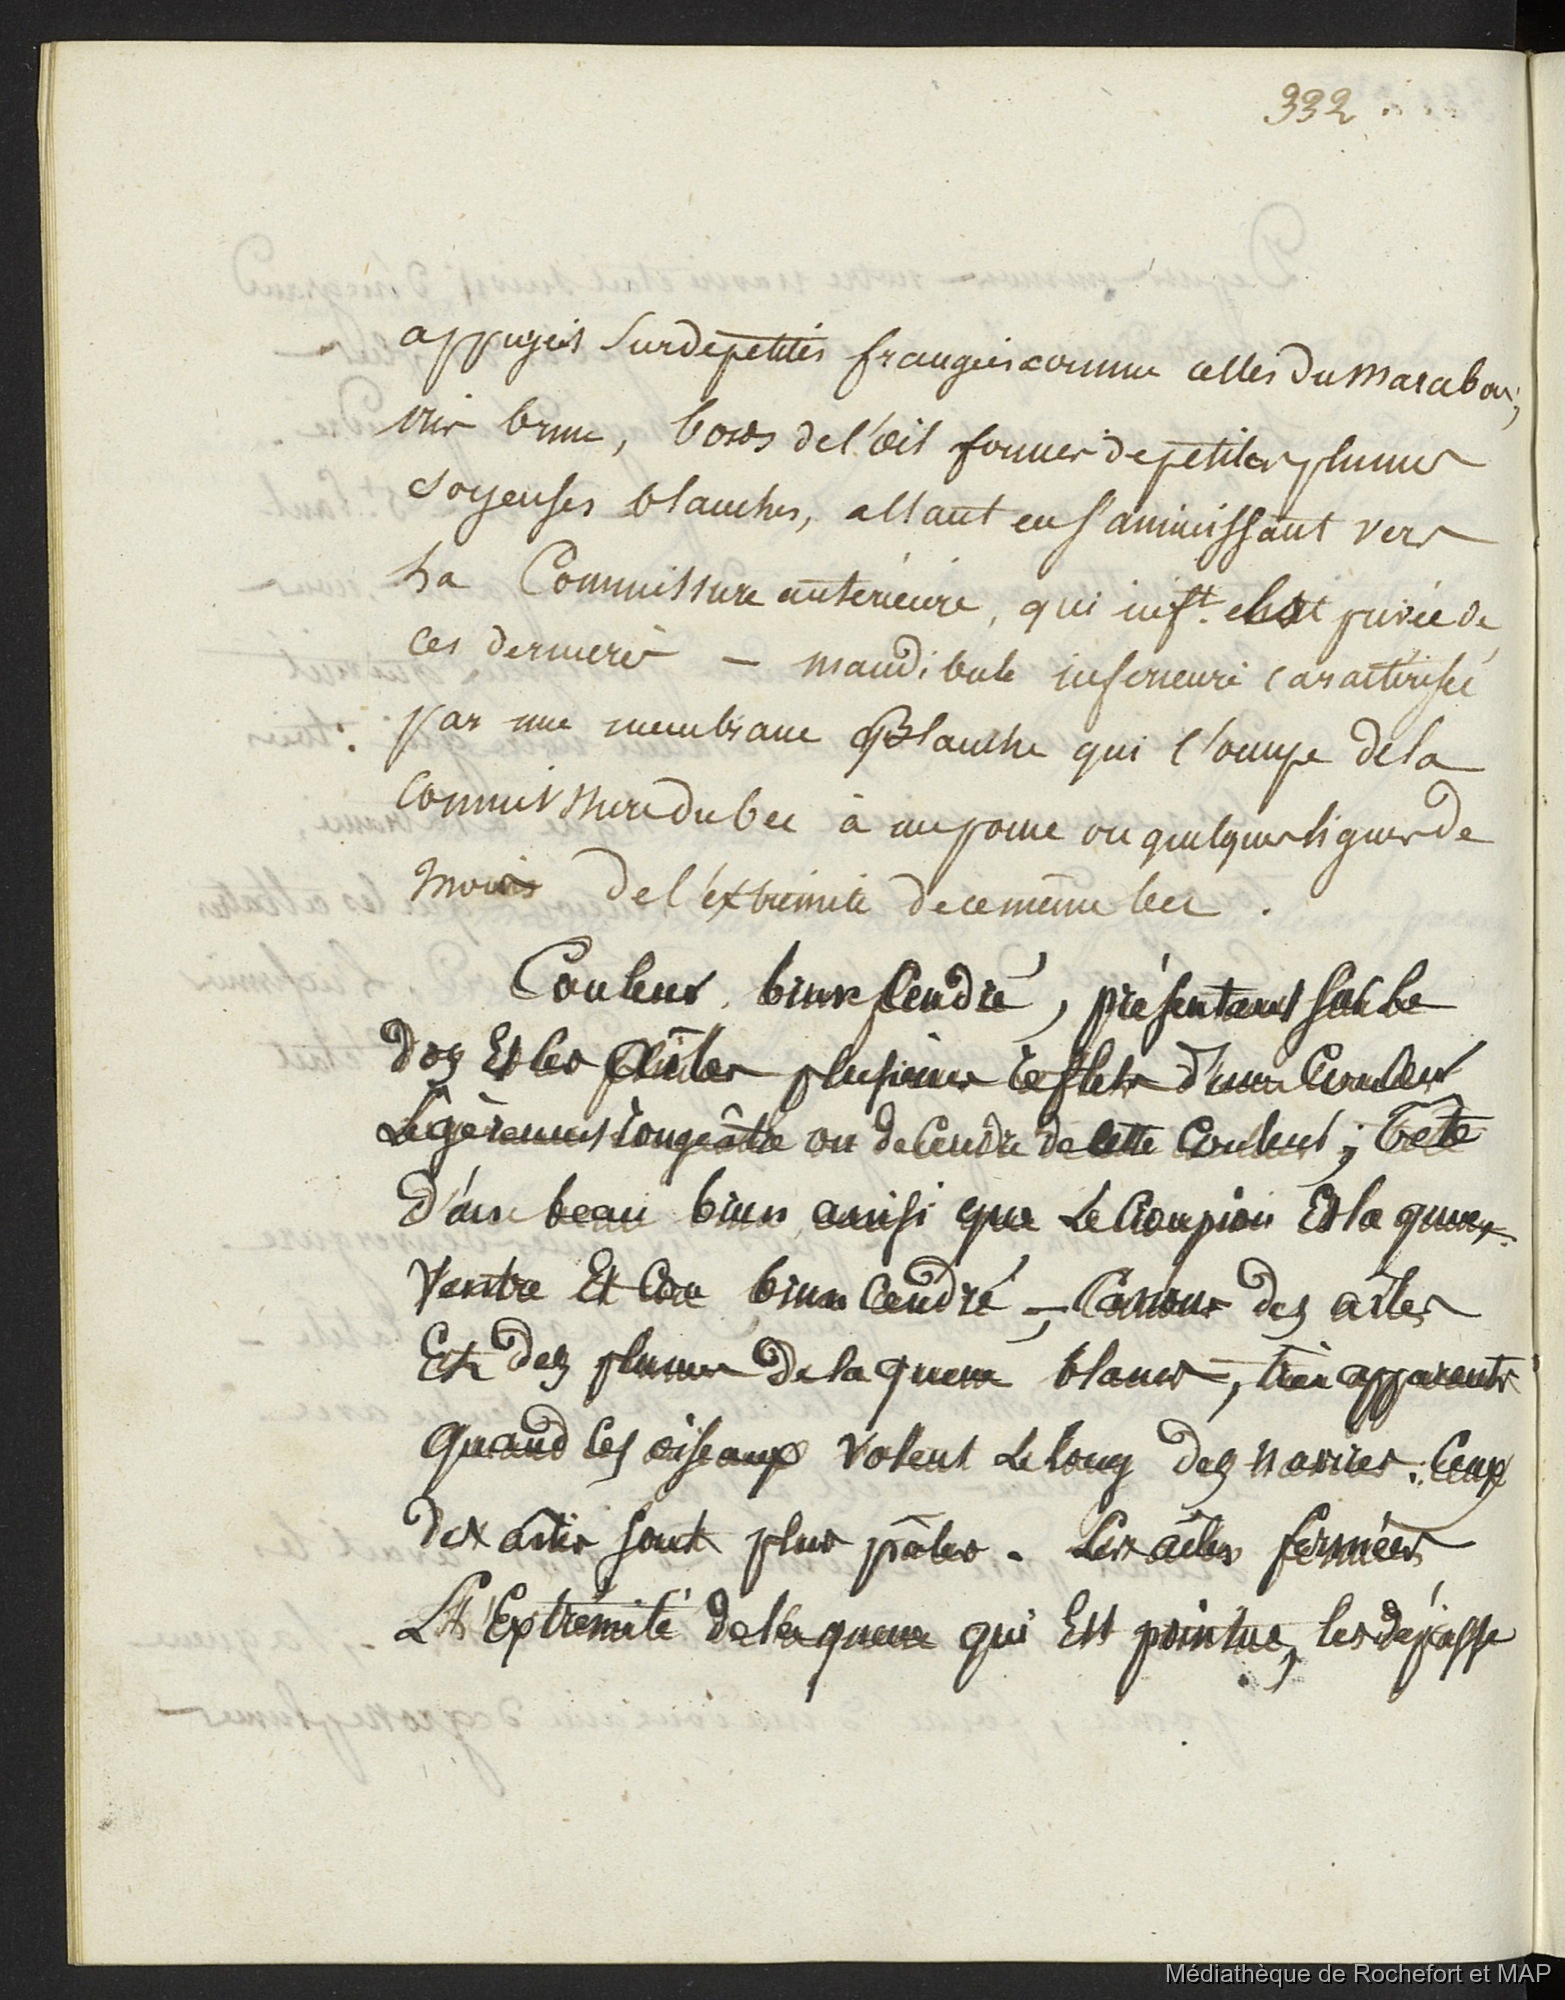 332 .
appuyés sur de petites franges comme celles du Marabou,
iris brun, bords de l'œil formés de petites plumes
soyeuses blanches, allant en s'amincissant vers
la Commissure antérieure, qui est privée de
ces dernieres — mandibule inferieure caractérisée
par une membrane Blanche qui s'occupe de la
commissure du bec à un pouce ou quelques lignes de
moins de l'extrémité de ce même bec .
Couleur brun Cendré, présentant sur le
dos Et les ailes plusieurs reflets d'une Couleur
Légèrement rougeâtre ou de Cendre de cette Couleur ; Tête
d'un beau brun ainsi que Le Croupion Et la queue.
Ventre Et Cou brun Cendré — Canons des ailes
Et des plumes de la queue blancs —, très apparents
quand Ces oiseaux volent Le long des navires. Ceux
des ailes sont plus pâles . Les ailes fermées
L'Extrémité de la queue qui Est pointue, les dépasse
Médiathèque de Rochefort et MAP